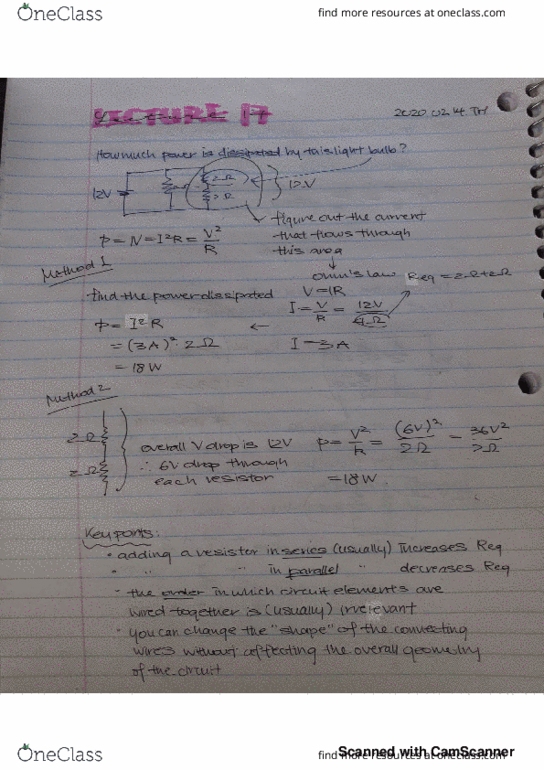 OneClass
find more resources at oneclass.com
LECTURE 17
2020.02.14.TH
How much power is dissipated by this light bulb?
12V
2Ω
2Ω
12V
figure out the current
that flows through
this area
P = IV = I²R = V²/R
Method 1
ohm's law
Req = 2Ω+2Ω
find the power dissipated
V=IR
P = I²R
I = V/R = 12V/4Ω
= (3A)² · 2Ω
I = 3A
= 18W
Method 2
2Ω
2Ω
overall V drop is 12V
∴ 6V drop through
each resistor
P = V²/R = (6V)²/2Ω = 36V²/2Ω
= 18W
Key points:
• adding a resister in series (usually) increases Req
• " " in parallel " decreases Req
- the order in which circuit elements are
wired together is (usually) irrelevant
• you can change the "shape" of the connecting
wires without affecting the overall geometry
of the circuit
OneClass
find more resources at oneclass.com
Scanned with CamScanner